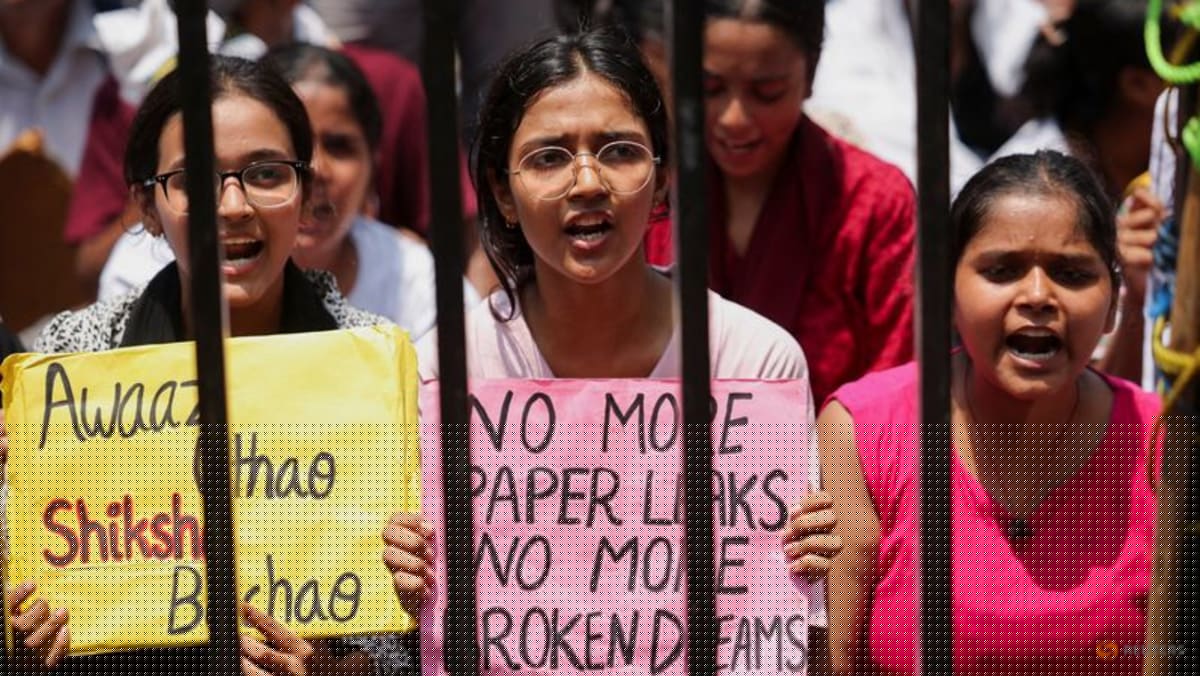 Awaaz
Uthao
Shiksha
Bachao
NO MORE
PAPER LEAKS
NO MORE
BROKEN DREAMS
REUTERS